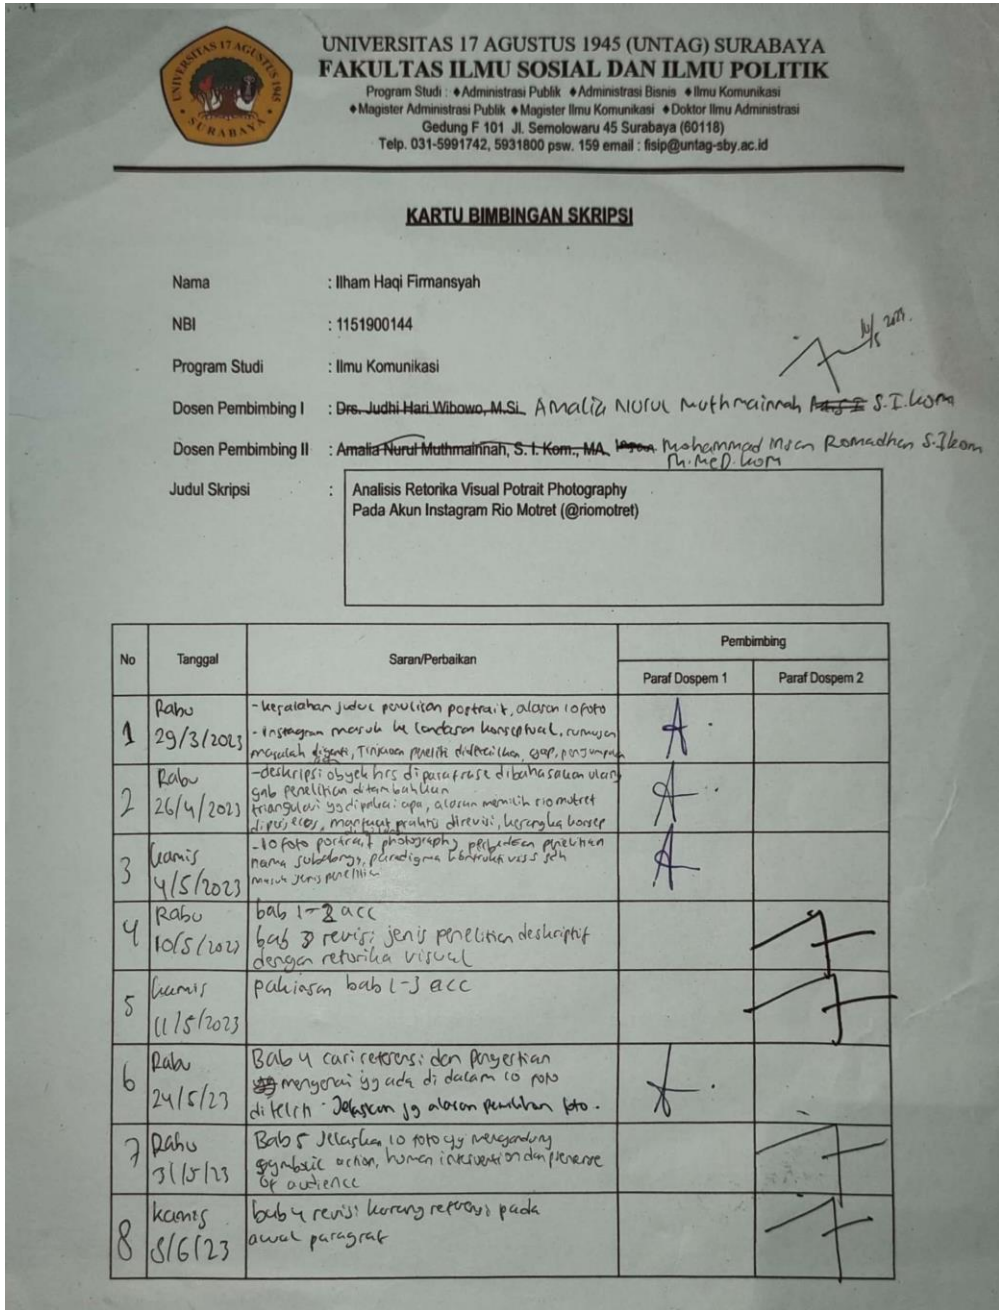 UNIVERSITAS 17 AGUSTUS 1945
SURABAYA
UNIVERSITAS 17 AGUSTUS 1945 (UNTAG) SURABAYA
FAKULTAS ILMU SOSIAL DAN ILMU POLITIK
Program Studi : ♦Administrasi Publik ♦Administrasi Bisnis ♦Ilmu Komunikasi
♦Magister Administrasi Publik ♦Magister Ilmu Komunikasi ♦Doktor Ilmu Administrasi
Gedung F 101 Jl. Semolowaru 45 Surabaya (60118)
Telp. 031-5991742, 5931800 psw. 159 email : fisip@untag-sby.ac.id
KARTU BIMBINGAN SKRIPSI
Nama : Ilham Haqi Firmansyah
NBI : 1151900144
Program Studi : Ilmu Komunikasi
Dosen Pembimbing I : Drs. Judhi Hari Wibowo, M.Si. Amalia Nurul Muthmainnah S.I.kom
Dosen Pembimbing II : Amalia Nurul Muthmainnah, S. I. Kom., MA. Mohammad Insan Romadhan S.Ikom
M.MeD.kom
Judul Skripsi : Analisis Retorika Visual Potrait Photography
Pada Akun Instagram Rio Motret (@riomotret)
No Tanggal Saran/Perbaikan Pembimbing
Paraf Dospem 1 Paraf Dospem 2
1 Rabu 29/3/2023
- kesalahan judul penulisan portrait, alasan 10 foto
- instagram masuk ke landasan konseptual, rumusan
masalah diganti, Tinjauan peneliti
2 Rabu 26/4/2023
- deskripsi obyek hrs diparafrase dibahasakan ulang
gab penelitian ditambahkan
triangulasi yg dipakai apa, alasan memilih riomotret
diperjelas, manfaat praktis direvisi, kerangka konsep
3 kamis 4/5/2023
- 10 foto portrait photography, perbedaan penelitian
paradigma
masuk jenis penelitian
4 Rabu 10/5/2023
bab 1-2 acc
bab 3 revisi jenis penelitian deskriptif
dengan retorika visual
5 kamis 11/5/2023
bab 1-3 acc
6 Rabu 24/5/23
Bab 4 cari referensi dan pengertian
mengenai yg ada di dalam 10 foto
diteliti. Jelaskan jg alasan pemilihan foto.
7 Rabu 31/5/23
Bab 5 Jelaskan 10 foto yg mengandung
symbolic action, human intervention dan presence
of audience
8 kamis 8/6/23
bab 4 revisi kurang referensi pada
awal paragraf